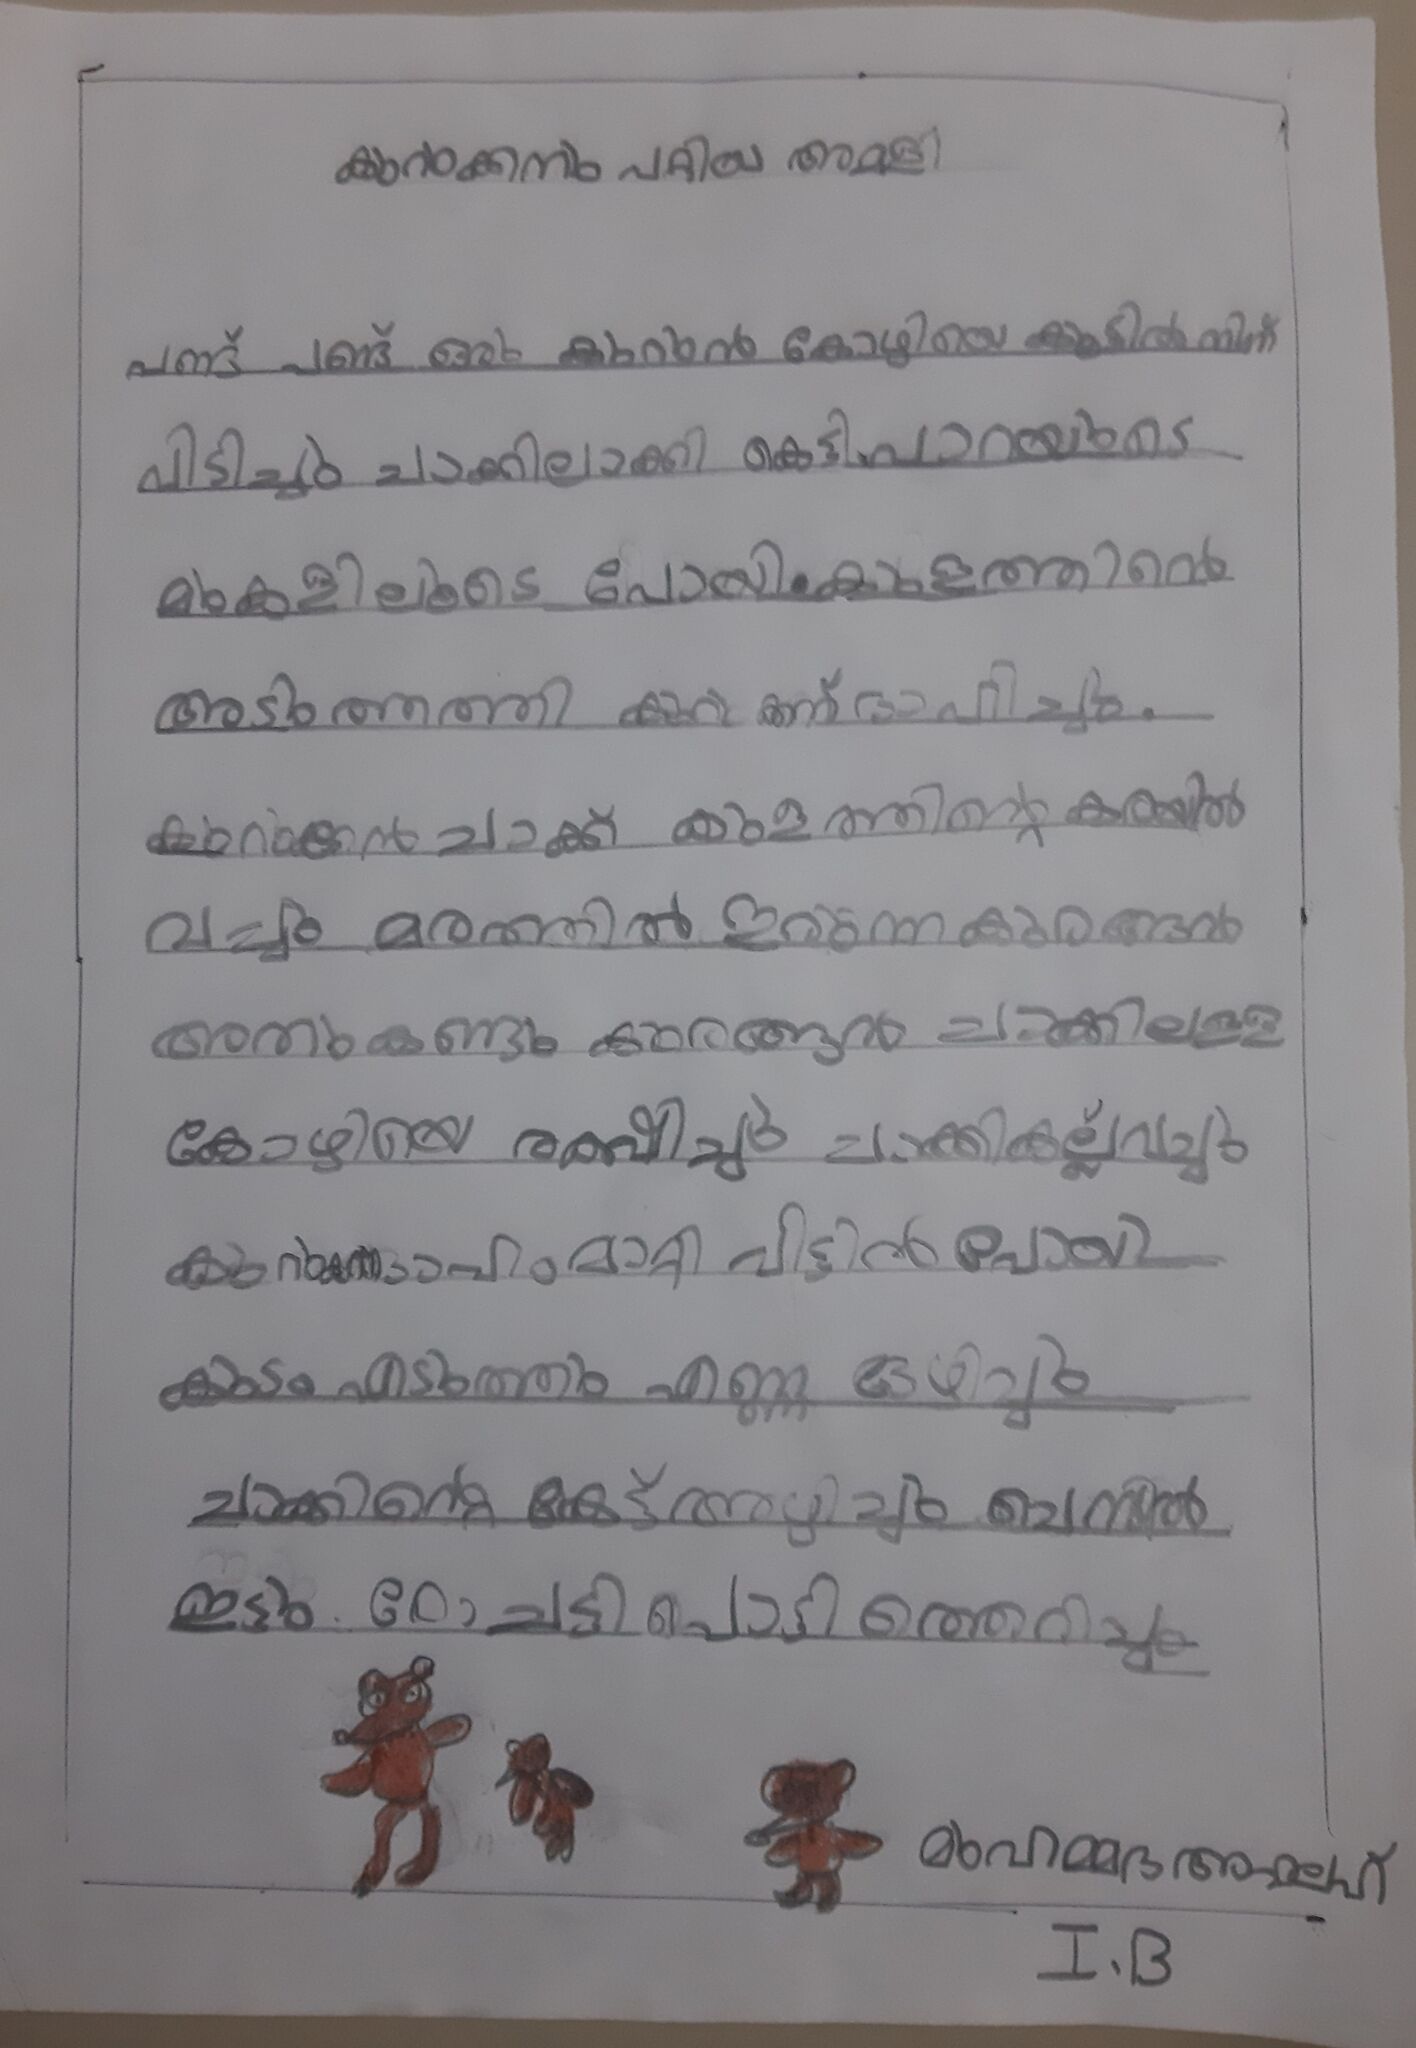 കുറുക്കനും പറ്റിയ അമളി
പണ്ട് പണ്ട് ഒരു കുറുൻ കോഴിയെ കൂട്ടിൽ നിന്ന്
പിടിച്ചു ചാക്കിലാക്കി കെട്ടി പാറയുടെ
മുകളിലൂടെ പോയി കുളത്തിൻെ
അടുത്തത്തി ദാഹിച്ചു.
ചാക്ക് കുളത്തിന്റെ കരയിൽ
വച്ചു മരത്തിൽ ഇരുന്ന കുരങ്ങൻ
അതു കണ്ടു കുരങ്ങൻ ചാക്കിലള്ള
കോഴിയെ രക്ഷിച്ചു ചാക്കി കല്ല് വച്ചു
ദാഹം മാറ്റി വീട്ടിൽ പോയി
കുടം എടുത്തു എണ്ണ ഒഴിച്ചു
ചാക്കിന്റെ കെട്ട് അഴിച്ചു
ഇട്ടു. ഠോ ചട്ടി പൊട്ടി ത്തെറിച്ചു
മുഹമ്മദ
I.B